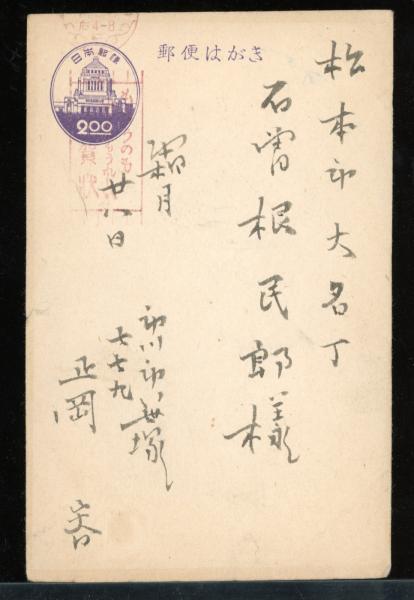 后4-8
日本郵便
2.00
郵便はがき
松本市大名丁
石曾根民郎様
霜月
廿八日
市川市
七七九
正岡 容